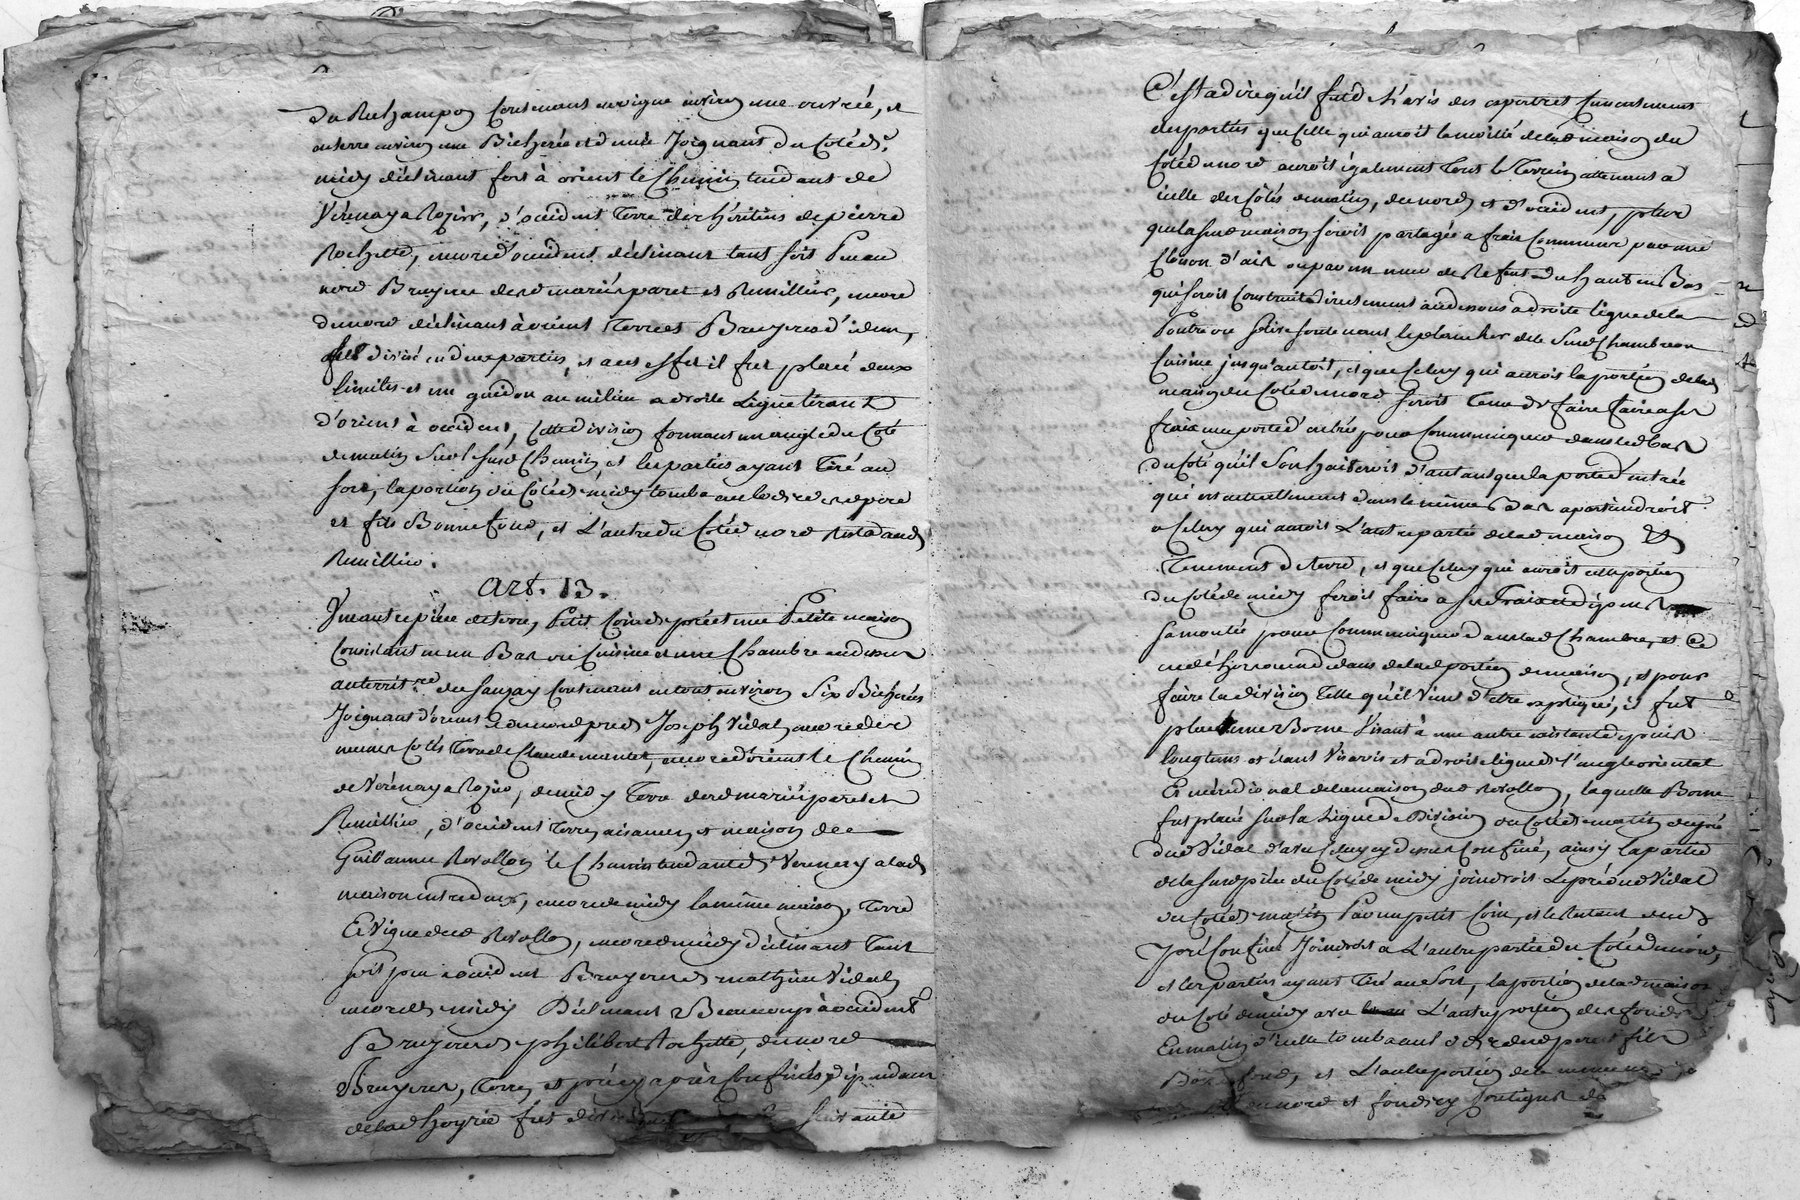 du Rechampon Contenant en vigne environ une ouvrée, et
en terre environ une Bicherée et demie Joignant du Coté de
midy déclinant fort à orient le Chemin tendant de
Vérenay a Rozier, d'occident Terre des héritiers de pierre
Rochette, encore d'occident déclinant tant soit Peu au
nord Bruyeres desd mariés paret et Remillier, encore
du nord déclinant à orient Terre et Bruyeres d'
fut divisé en deux parties, et a cet effet il fut placé deux
limites et un guidon au milieu a droite Ligne tirant
d'orient à occident, Cette division formant un angle du Coté
de matin sur led Chemin, et les parties ayant Tiré au
sort, la portion du Coté de midy tomba au lot des père
et fils Bonnefond, et L'autre du Coté de nord resta aud
Remillier.
Art. 13.
Un autre pièce de terre, Petit Coin de pré et une Petite maison
Consistant en un Bas ou Cuisine et une Chambre au dessus
au territ.re du Sauzay Contenant en tout environ Six Bicherées
Joignant d'orient et de nord pred Joseph Vidal, encore desd
mêmes Cotés Terre de Claude , encore d'orient le Chemin
de Vérenay a Rozier, de midy Terre desd mariés paret et
Remillier, d'occident Terre, aisances, et maison de
Guillaume Revollon le Chemin tendant de Vérenay a lad
maison entre deux, encore de midy la même maison, Terre
Et Vigne dud Revollon, encore de midy déclinant Tant
soit peu a occident Bruyeres de mathieu Vidal,
encore de midy Déclinant Beaucoup à occident
Bruyeres de philibert Rochette, de nord
Bruyeres, Terre, et pré cy après Confinés, dépendant
de lad hoyrie fut suivante
C'est a dire qu'il fut de L'avis des experts et Consentement
des parties que Celle qui auroit la moitié de lad maison du
Coté de nord auroit également Tout le Terrein attenant a
icelle des Cotés de matin, de nord et d'occident, plus
que lad maison seroit partagée a frais Communs par une
Cloison d'ais ou par un mur de Refent du haut en Bas
qui seroit Construite directement au dessous a droite ligne de la
Poutre ou solive soutenant le plancher de la Susd Chambre ou
Cuisine jusqu'au toit, et que Celuy qui auroit la portion de lad
maison du Coté de nord seroit Tenu de faire faire a ses
frais une porte d'entrée pour Communiquer dans led bas
du Coté qu'il Souhaiteroit d'autant que la porte d'entrée
qui est actuellement dans le même bas apartiendroit
a Celuy qui auroit L'autre partie de lad maison Et
Tenement de terre, et que Celuy qui auroit cette portion
du Coté de midy feroit faire a ses frais et dépens
sa montée pour Communiquer dans lad Chambre, et Ce
en dehors ou en dedans de lad portion de maison, et pour
faire la division Telle qu'il Vient d'etre expliqué, il fut
placé une Borne Visant à une autre existante depuis
longtems et étant Vis avis et a droite ligne de L'angle oriental
Et méridional de la maison dud Revollon, laquelle Borne
fut placée sur la Ligne de Division du Coté de matin du pré
dud Vidal d'avec Celuy cy dessus Confiné, ainsy la partie
de la susd pièce du Coté de midy joindroit Le pré dud Vidal
du Coté de matin Par un petit Coin, et le Restant dud
Pré Confiné Joindroit a L'autre partie du Coté de nord,
et les parties ayant Tiré au sort, la portion de lad maison
du Coté de midy avec L'autre portion des fonds
En matin d'icelle tomba aud père et fils
Bonnefond, et L'autre portion de la même
de nord et fonds cy Contigus